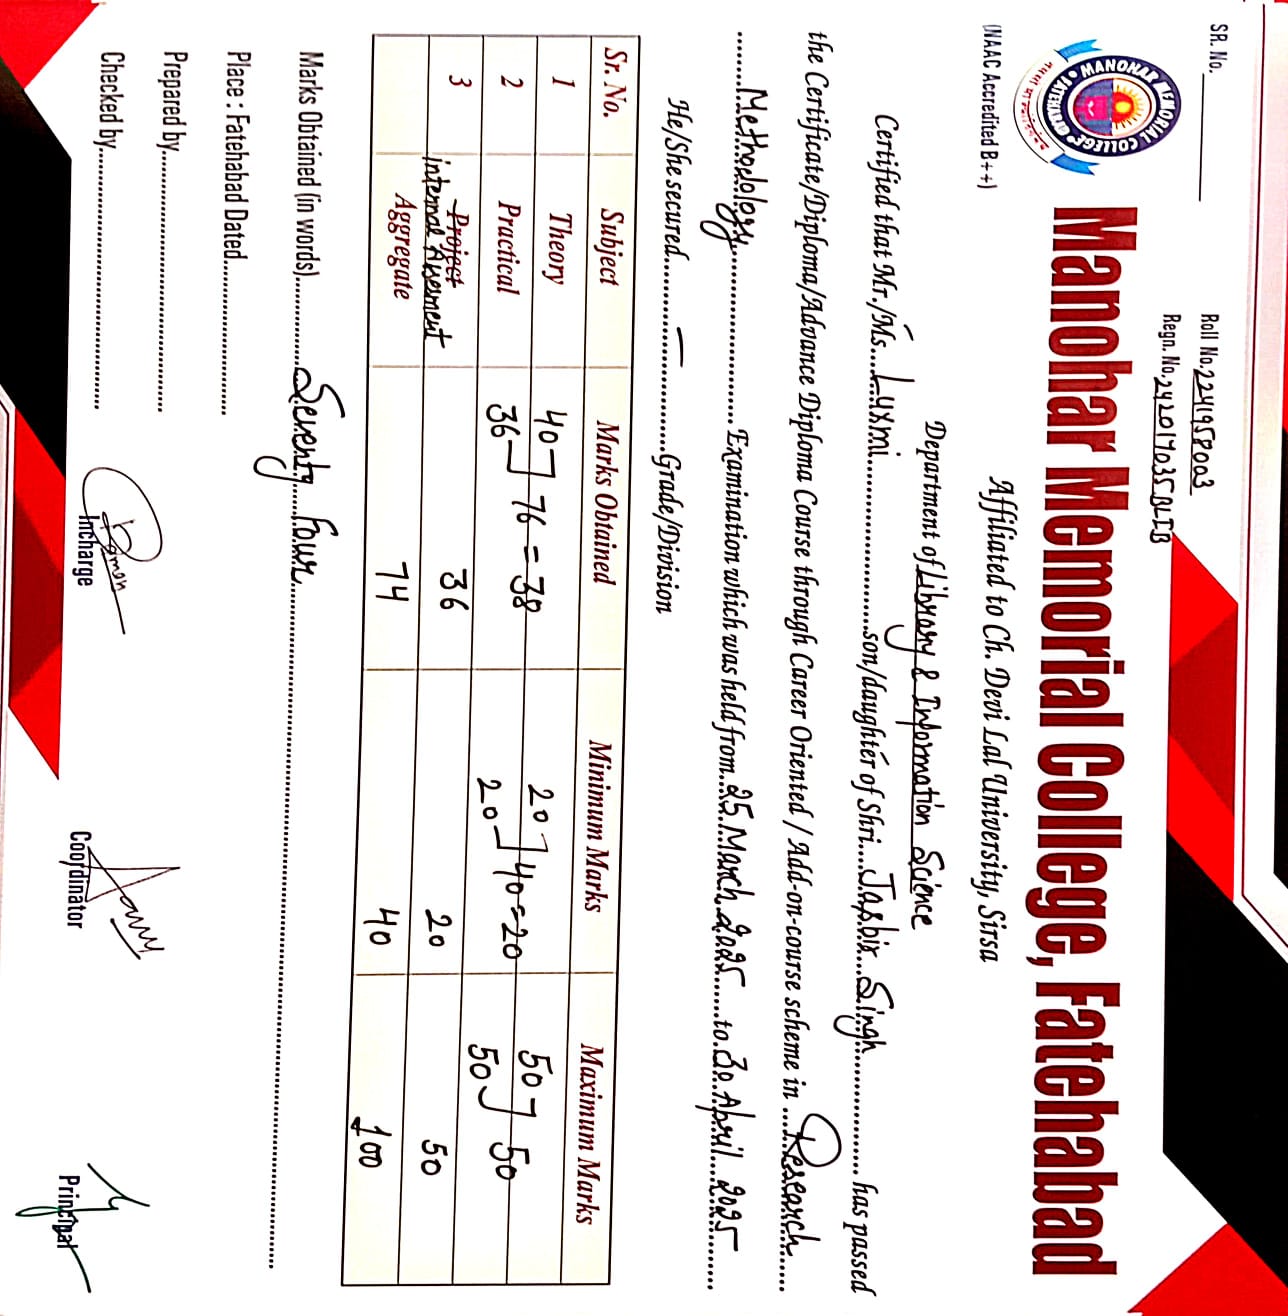 SR. No.
Roll No. 2241958003
Regn. No. 242017035BLIB
MANOHAR MEMORIAL COLLEGE FATEHABAD
Manohar Memorial College, Fatehabad
(NAAC Accredited B++)
Affiliated to Ch. Devi Lal University, Sirsa
Department of Library & Information Science
Certified that Mr./Ms. Luxmi son/daughter of Shri. Jasbir Singh has passed
the Certificate/Diploma/Advance Diploma Course through Career Oriented / Add-on-course scheme in Research
Methodology Examination which was held from 25 March 2025 to 30 April 2025
He/She secured — Grade/Division
Sr. No. Subject Marks Obtained Minimum Marks Maximum Marks
1 Theory 40 ] 76 = 38 20 ] 40 = 20 50 ] 50
2 Practical 36 20 50
3 Project internal Assesment 36 20 50
Aggregate 74 40 100
Marks Obtained (in words) Seventy Four
Place : Fatehabad Dated
Prepared by
Checked by
Incharge Coordinator Principal